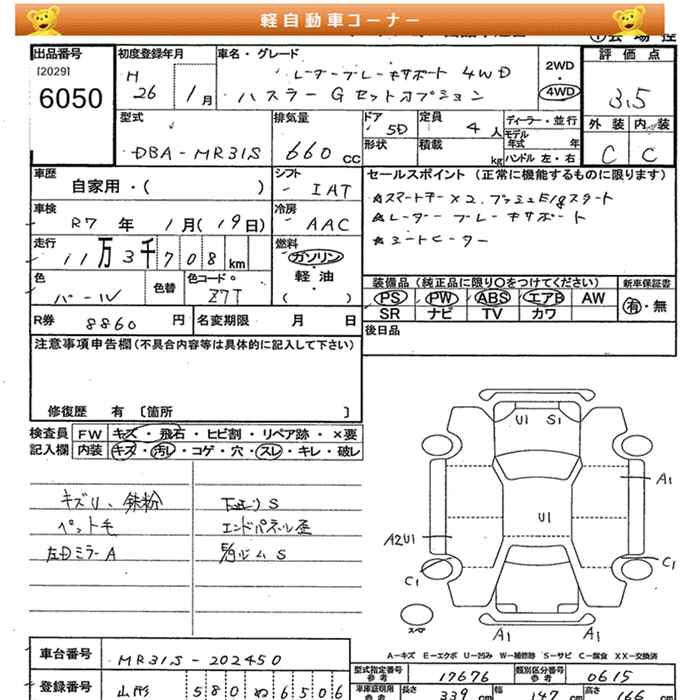 軽自動車コーナー
出品番号
[2029]
6050
初度登録年月
H
26 / 1月
車名・グレード
レーダーブレーキサポート 4WD
ハスラー G セットオプション
2WD
・
4WD
評価点
3.5
型式
DBA-MR31S
排気量
660 CC
ドア 5D
形状
定員 4人
積載 kg
ディーラー・並行
モデル
年式 年
ハンドル 左・右
外装 内装
C C
車歴
自家用・( )
シフト
IAT
セールスポイント (正常に機能するものに限ります)
☆スマートキー×2.プッシュE/gスタート
☆レーダーブレーキサポート
☆シートヒーター
車検
R7 年 1月(19日)
冷房
AAC
走行
11万3千708km
燃料
ガソリン
軽・油
( )
色
パール
色替
色コード
Z7T
装備品 (純正品に限り○をつけてください)
PS PW ABS エアB AW
SR ナビ TV カワ
新車保証書
有・無
R券 8860 円
名変期限 月 日
後日品
注意事項申告欄(不具合内容等は具体的に記入して下さい)
修復歴 有 〔箇所 〕
検査員
記入欄
FW キズ・飛石・ヒビ割・リペア跡・×要
内装 キズ・汚レ・コゲ・穴・スレ・キレ・破レ
キズU、鉄粉
ペット毛
左Dミラー A
下廻り S
エンドパネル歪
E/gルーム S
U1 S1
A1
U1
A2U1
C1
C1
スペア
A1 A1
A-キズ E-エクボ U-凹み W-補修跡 S-サビ C-腐食 XX-交換済
車台番号
MR31S-202450
登録番号
山形 580 ぬ 6506
型式指定番号
参考
17676
類別区分番号
参考
0615
車庫証明用
参考
長さ 339 cm
幅 147 cm
高さ 166 cm